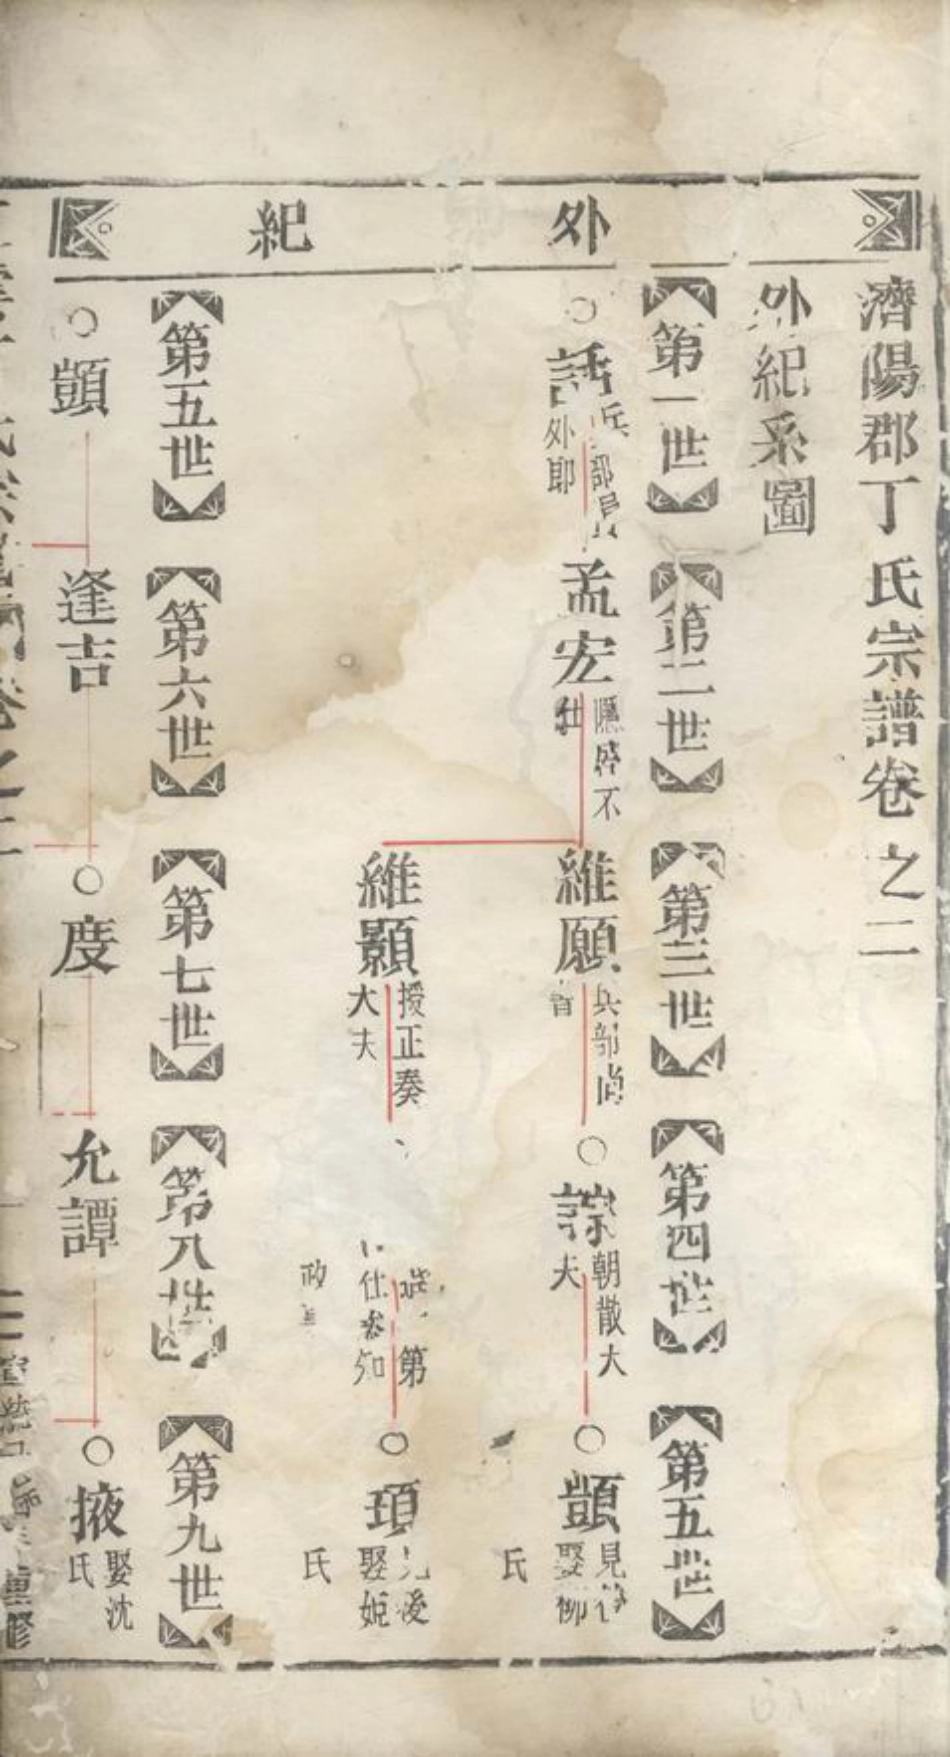 外紀
濟陽郡丁氏宗譜卷之二
外紀系圖
第一世
第二世
第三世
第四世
第五世
○話
兵部員
外郎
孟宏
隱 不
仕
維願
兵部尚
書
○
朝散大
夫
○顗
見後
娶柳
氏
維顥
授正奏
大夫
第
仕參知
政事
○頊
見後
娶姬
氏
第五世
第六世
第七世
第八世
第九世
○顗
逢吉
○度
允譚
○掖
娶沈
氏
重修